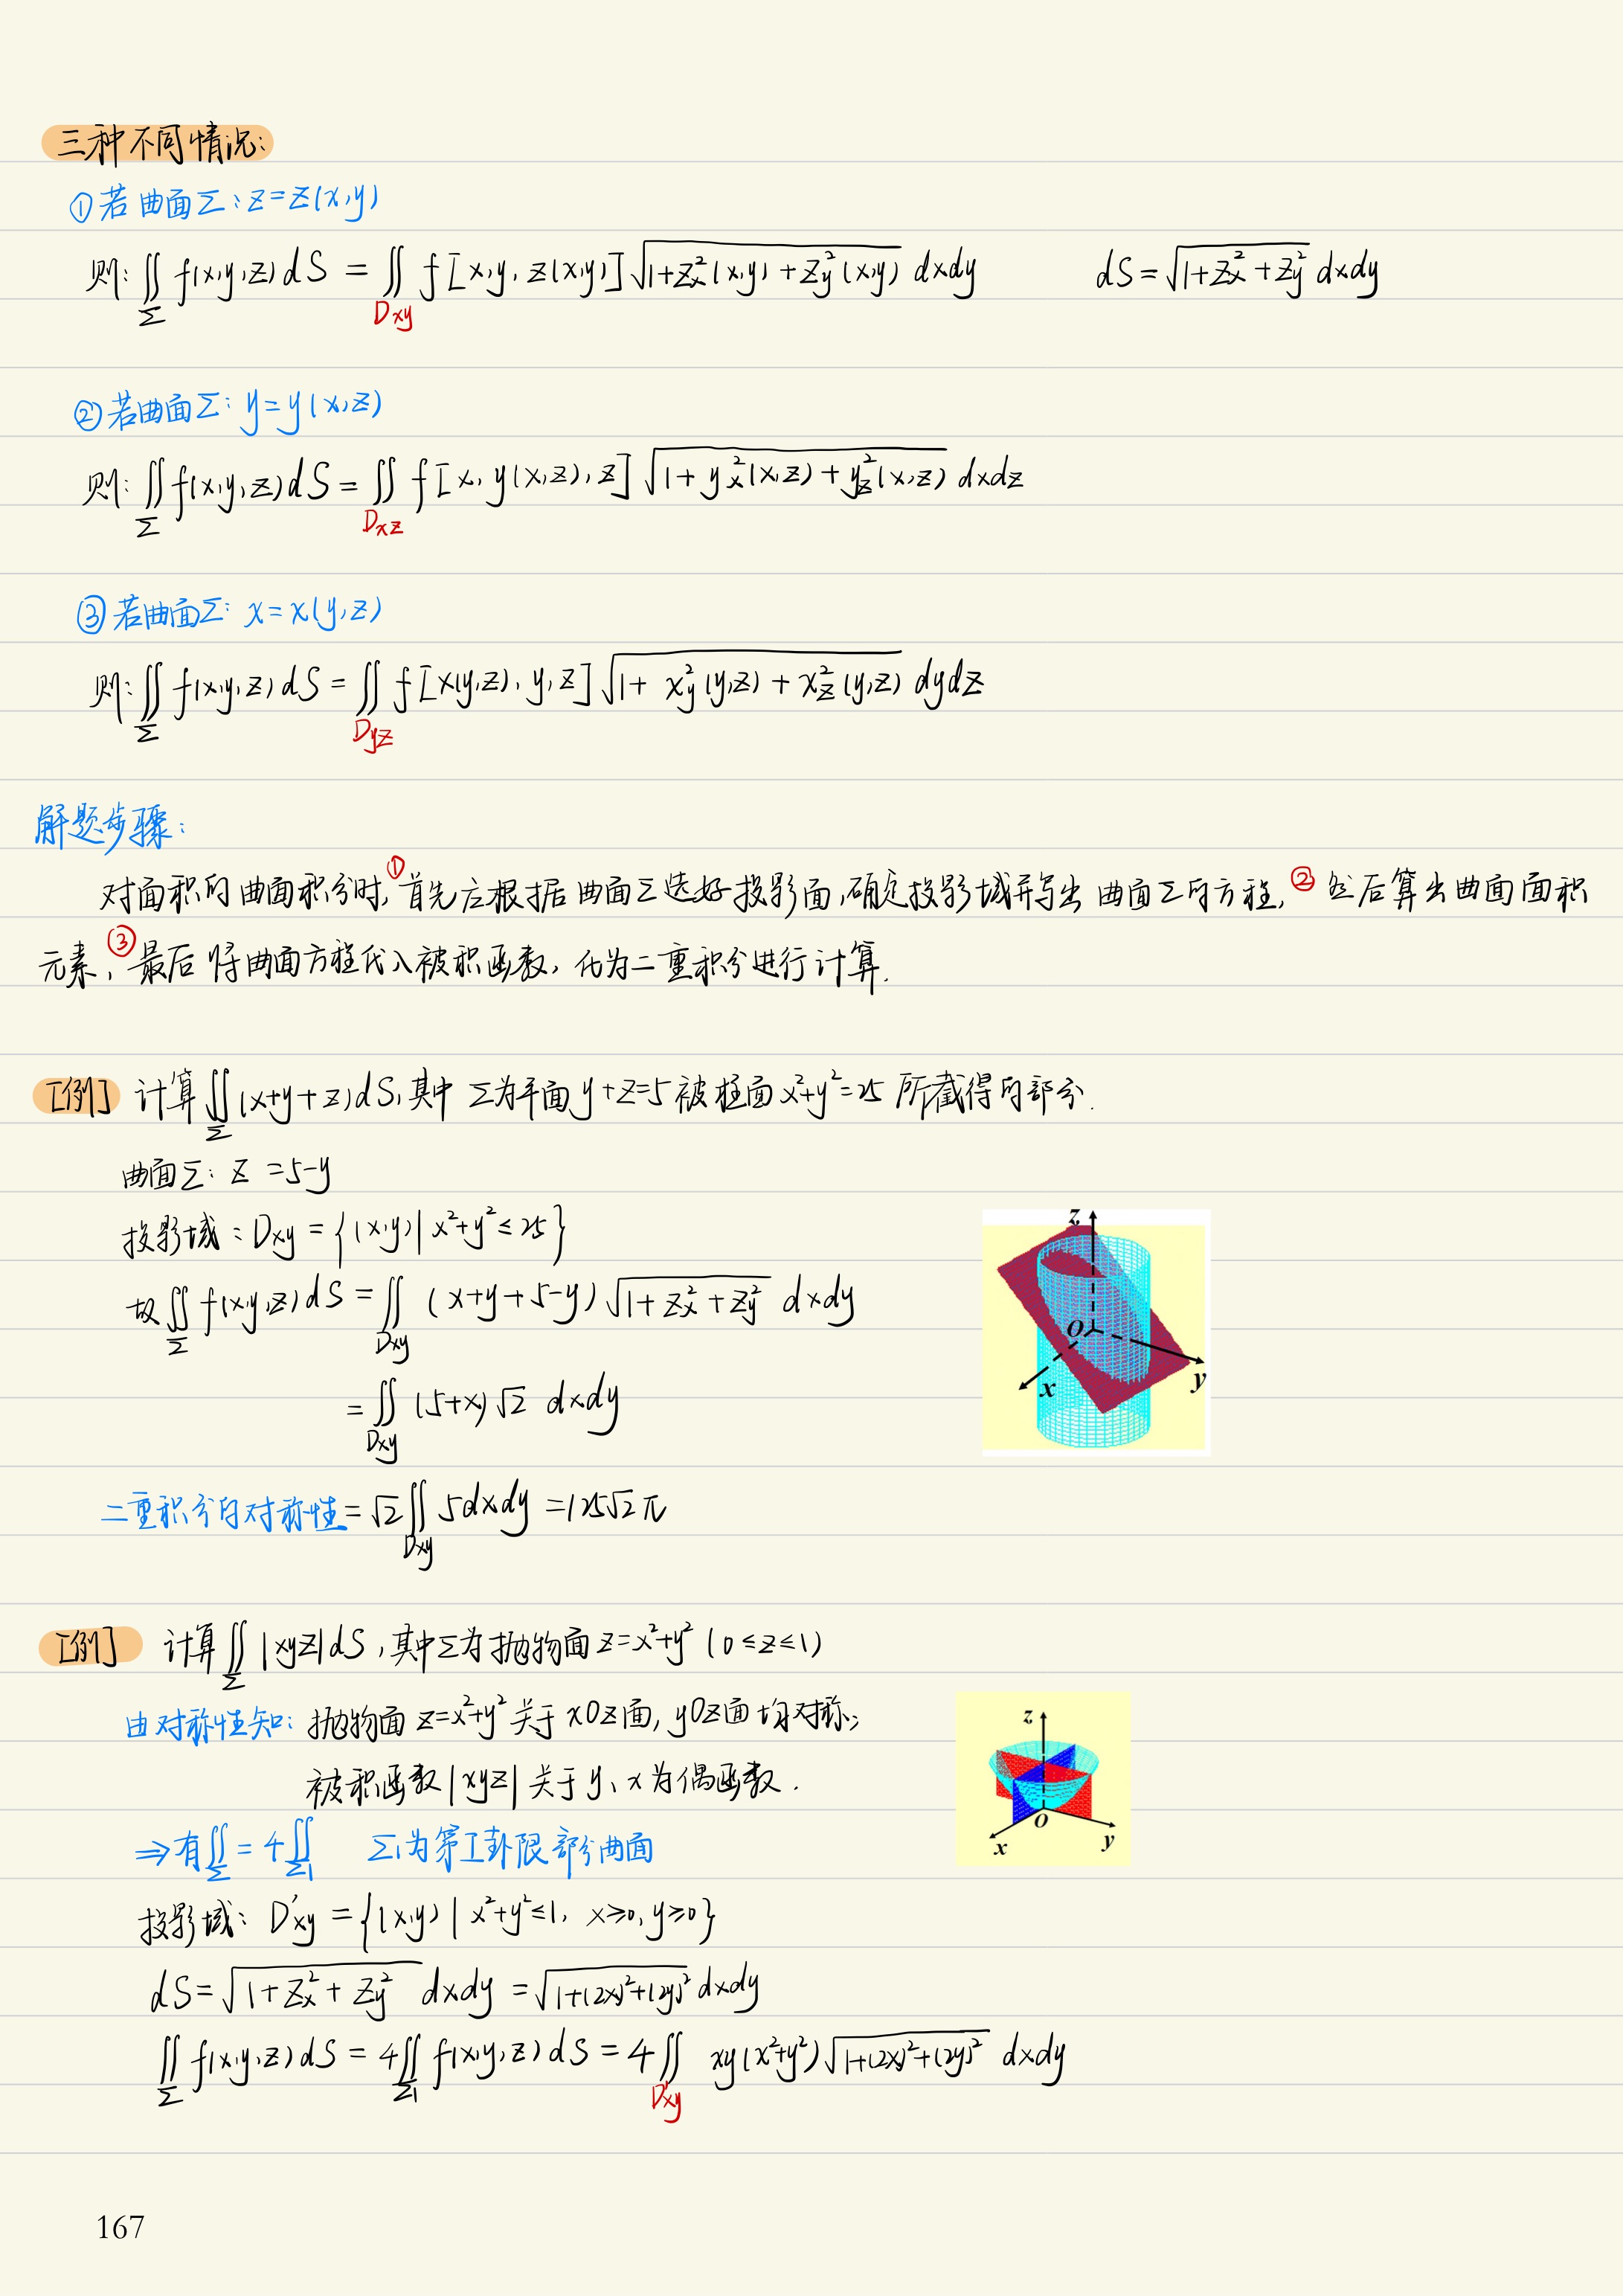 三种不同情况:
①若曲面Σ:z=z(x,y)
则:∬_Σ f(x,y,z)dS = ∬_{Dxy} f[x,y,z(x,y)]√(1+z_x²(x,y)+z_y²(x,y)) dxdy dS=√(1+z_x²+z_y²) dxdy
②若曲面Σ: y=y(x,z)
则:∬_Σ f(x,y,z)dS=∬_{Dxz} f[x,y(x,z),z]√(1+y_x²(x,z)+y_z²(x,z)) dxdz
③若曲面Σ: x=x(y,z)
则:∬_Σ f(x,y,z)dS=∬_{Dyz} f[x(y,z),y,z]√(1+x_y²(y,z)+x_z²(y,z)) dydz
解题步骤:
对面积的曲面积分时,①首先应根据曲面Σ选好投影面,确定投影域并写出曲面Σ的方程,②然后算出曲面面积
元素,③最后将曲面方程代入被积函数,化为二重积分进行计算.
[例] 计算∬_Σ(x+y+z)dS,其中Σ为平面y+z=5被柱面x²+y²=25所截得的部分.
曲面Σ: z=5-y
投影域:Dxy={(x,y)|x²+y²≤25}
故∬_Σ f(x,y,z)dS=∬_{Dxy} (x+y+5-y)√(1+z_x²+z_y²) dxdy
=∬_{Dxy} (5+x)√2 dxdy
二重积分的对称性=√2∬_{Dxy} 5dxdy=125√2π
z
O
x
y
[例] 计算∬_Σ|xyz|dS,其中Σ为抛物面z=x²+y²(0≤z≤1)
由对称性知: 抛物面z=x²+y²关于xOz面,yOz面均对称;
被积函数|xyz|关于y、x为偶函数.
⇒有∬_Σ=4∬_{Σ1} Σ1为第I卦限部分曲面
z
O
x
y
投影域: D'xy={(x,y)|x²+y²≤1, x≥0,y≥0}
dS=√(1+z_x²+z_y²) dxdy=√(1+(2x)²+(2y)²) dxdy
∬_Σ f(x,y,z)dS=4∬_{Σ1} f(x,y,z)dS=4∬_{D'xy} xy(x²+y²)√(1+(2x)²+(2y)²) dxdy
167